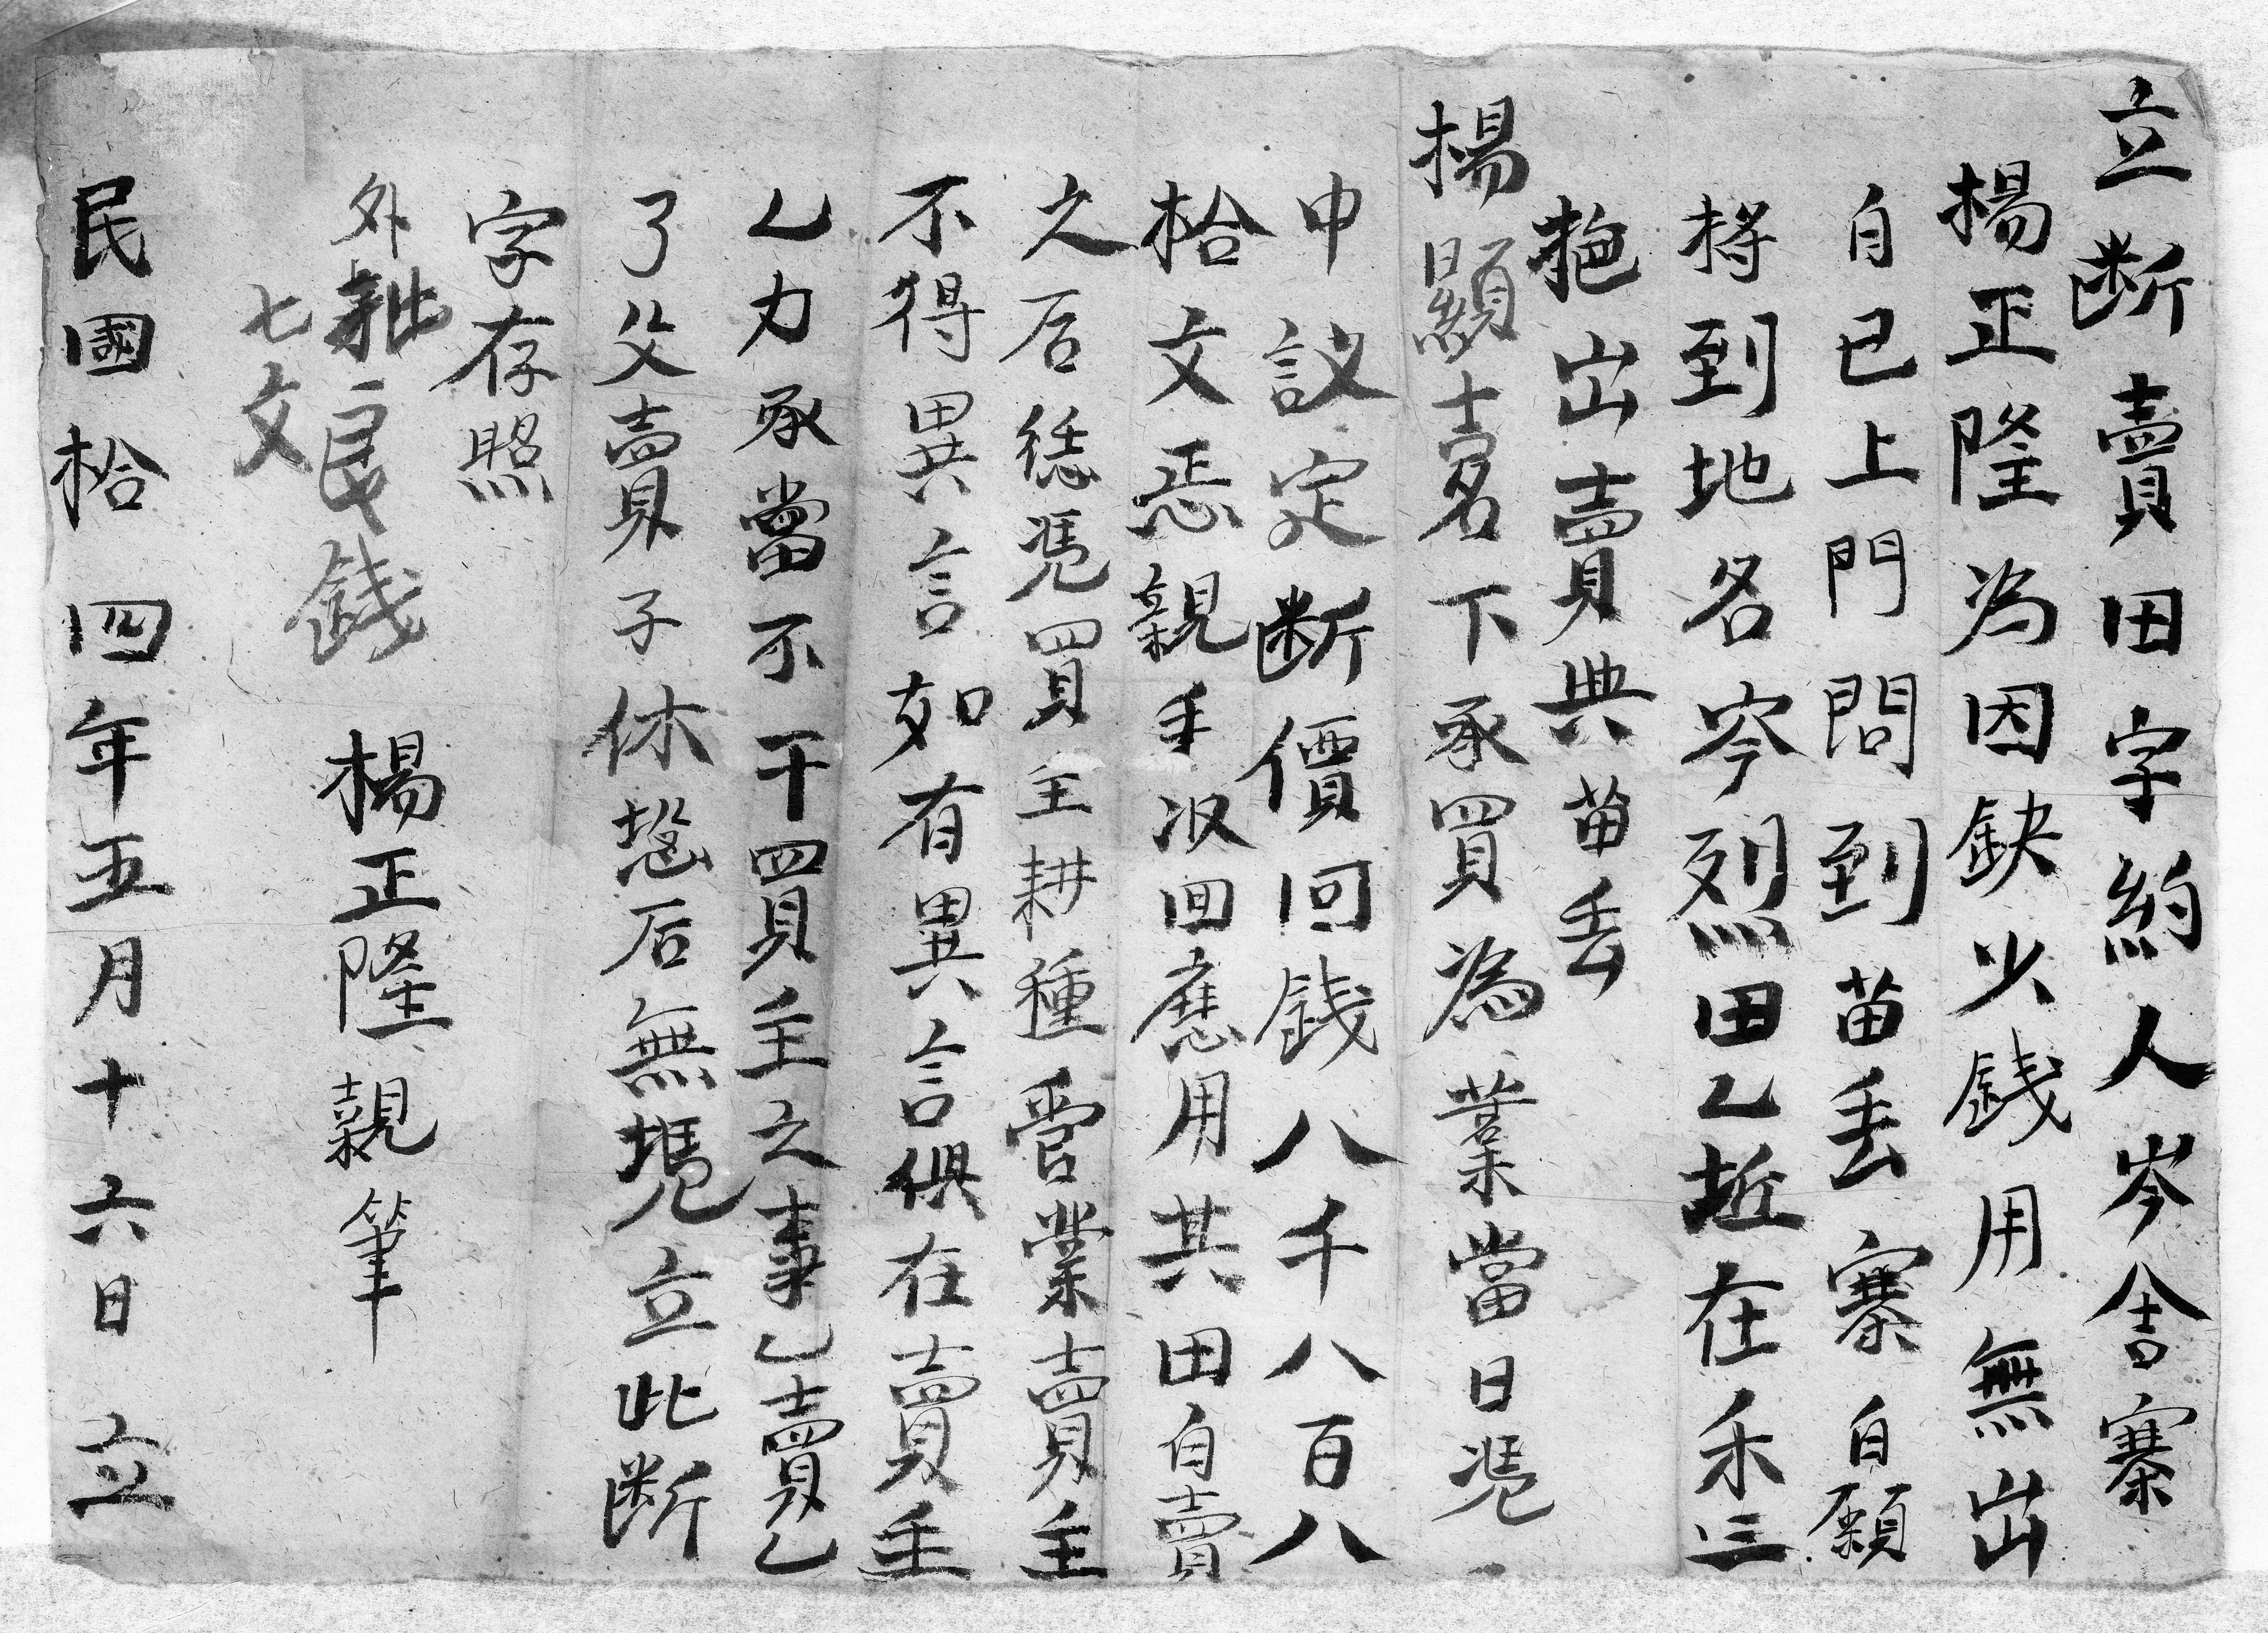 立断賣田字約人岑舍寨
楊正隆為因缺少錢用無出
自已上門問到苗丢寨自願
将到地名岑烈田乙坵在禾三
𢲸出賣典苗丢
楊顯士名下承買為業當日凴
中議定断價回錢八千八百八
拾文恶親手収回應用其田自賣
之后恁凴買主耕種管業賣主
不得異言如有異言俱在賣主
乙力承當不干買主之事乙賣乙
了父賣子休恐后無凴立此断
字存照
外粃粮錢
七文
楊正隆親筆
民國拾四年五月十六日 立